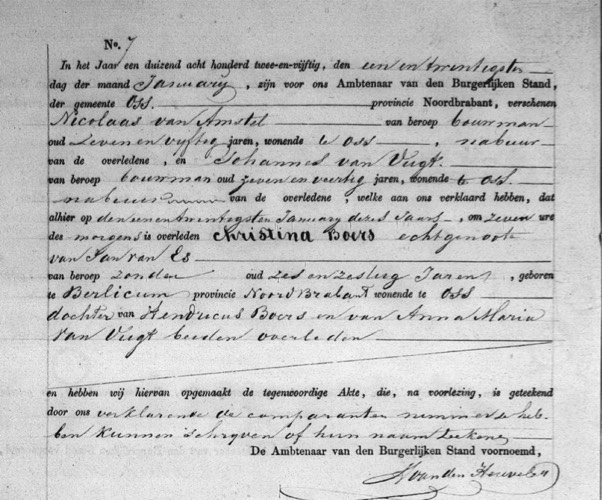 No. 7
In het Jaar een duizend acht honderd twee-en-vijftig, den een en twintigsten
dag der maand January, zijn voor ons Ambtenaar van den Burgerlijken Stand,
der gemeente Oss. provincie Noordbrabant, verschenen
Nicolaas van Amstel van beroep bouwman
oud zeven en vyftig jaren, wonende te Oss, nabuur
van de overledene, en Johannes van Vugt.
van beroep bouwman oud zeven en veertig jaren, wonende te Oss.
nabuur van de overledene, welke aan ons verklaard hebben, dat
alhier op den een en twintigsten January dezes Jaars, om zeven ure
des morgens is overleden Christina Boers echtgenoote
van Jan van Es
van beroep zonder oud zes en zestig Jaren, geboren
te Berlicum provincie Noord Brabant wonende te Oss
dochter van Hendricus Boers en van Anna Maria
van Vugt beiden overleden
en hebben wij hiervan opgemaakt de tegenwoordige Akte, die, na voorlezing, is geteekend
door ons verklarende de comparanten nimmer te heb-
ben kunnen schryven of hun naam teekenen
De Ambtenaar van den Burgerlijken Stand voornoemd,
van den Heuvel